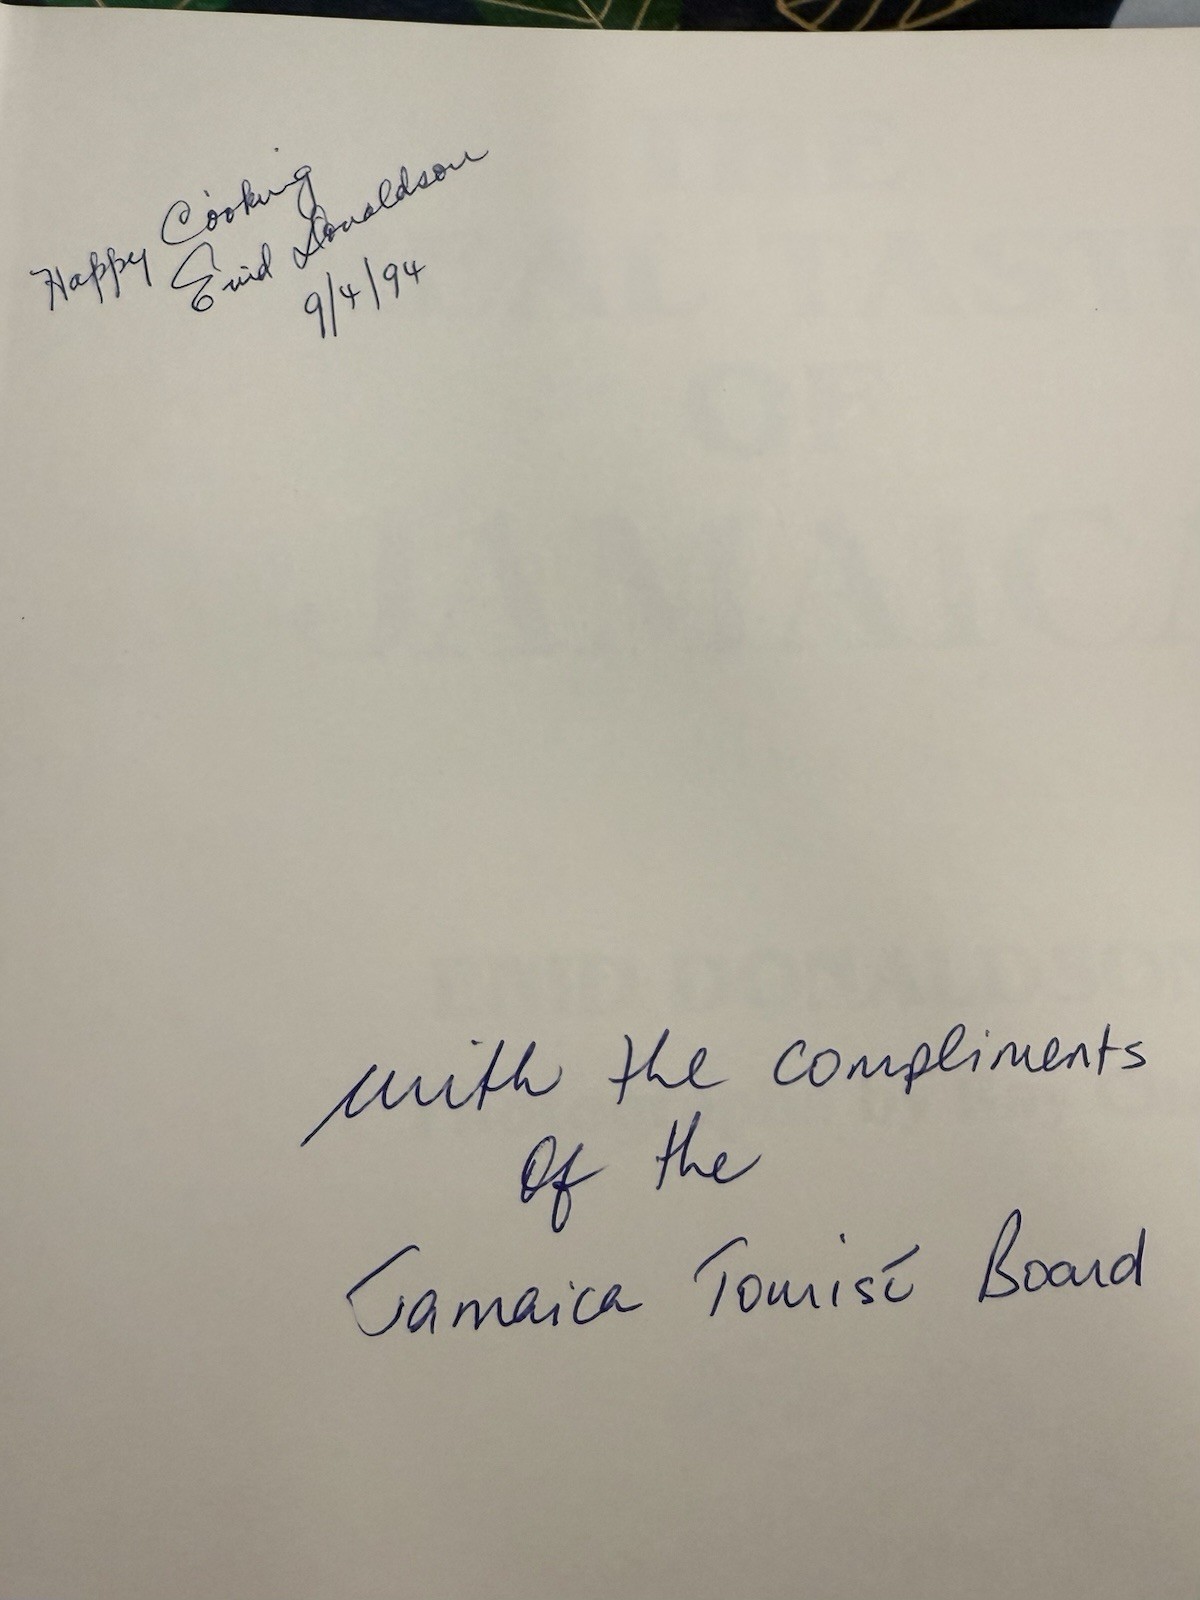 Happy Cooking
Enid Donaldson
9/4/94
with the compliments
Of the
Jamaica Tourist Board